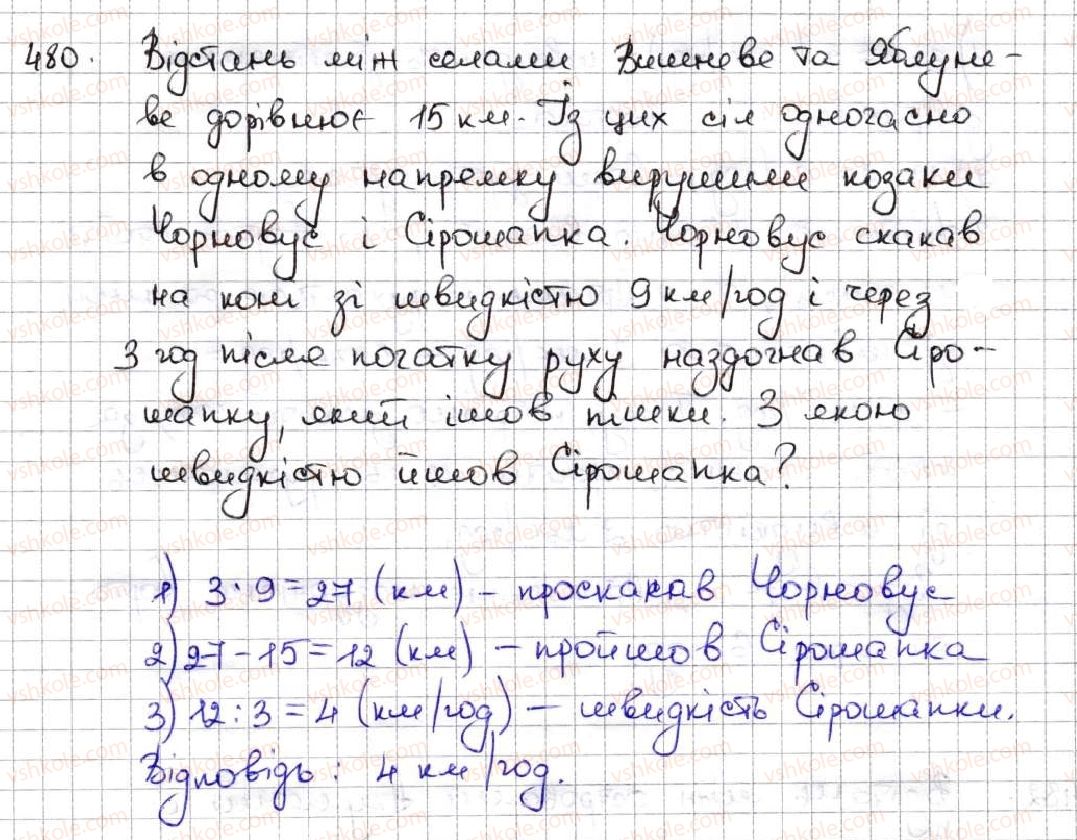 480. Відстань між селами Вишневе та Яблуне-
ве дорівнює 15 км. Із цих сіл одночасно
в одному напрямку вирушили козаки
Чорновус і Сірошапка. Чорновус скакав
на коні зі швидкістю 9 км/год і через
3 год після початку руху наздогнав Сіро-
шапку, який ішов пішки. З якою
швидкістю йшов Сірошапка?
1) 3 · 9 = 27 (км) – проскакав Чорновус
2) 27 – 15 = 12 (км) – пройшов Сірошапка
3) 12 : 3 = 4 (км/год) – швидкість Сірошапки.
Відповідь: 4 км/год.